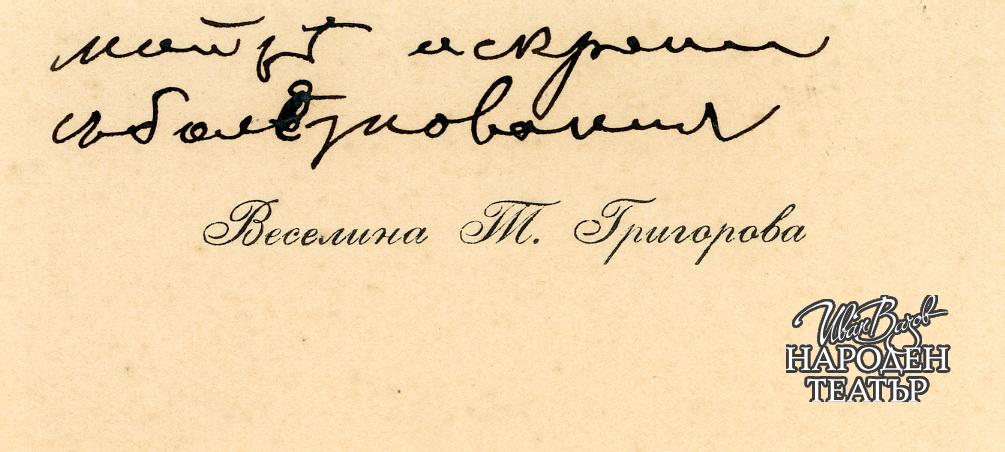 моитѣ искрени
съболезнования
Веселина Т. Григорова
Иван Вазов
НАРОДЕН
ТЕАТЪР